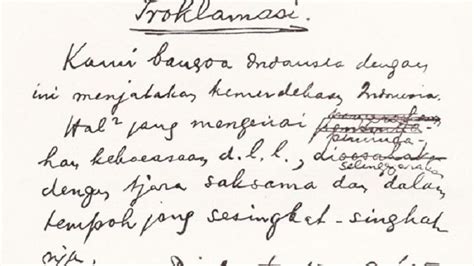 Proklamasi.
Kami bangsa Indonesia dengan
ini menjatakan kemerdekaan Indonesia.
Hal² jang mengenai peminda-
han kekoeasaan d.l.l., diselenggarakan
dengan tjara saksama dan dalam
tempoh jang sesingkat-singkat
nja.